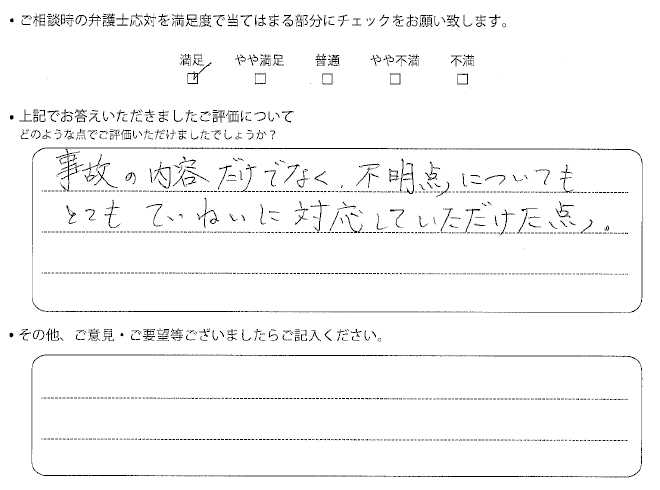 ・ご相談時の弁護士応対を満足度で当てはまる部分にチェックをお願い致します。
満足 やや満足 普通 やや不満 不満
・上記でお答えいただきましたご評価について
どのような点でご評価いただけましたでしょうか？
事故の内容だけでなく、不明点についても
とてもていねいに対応していただけた点。
・その他、ご意見・ご要望等ございましたらご記入ください。